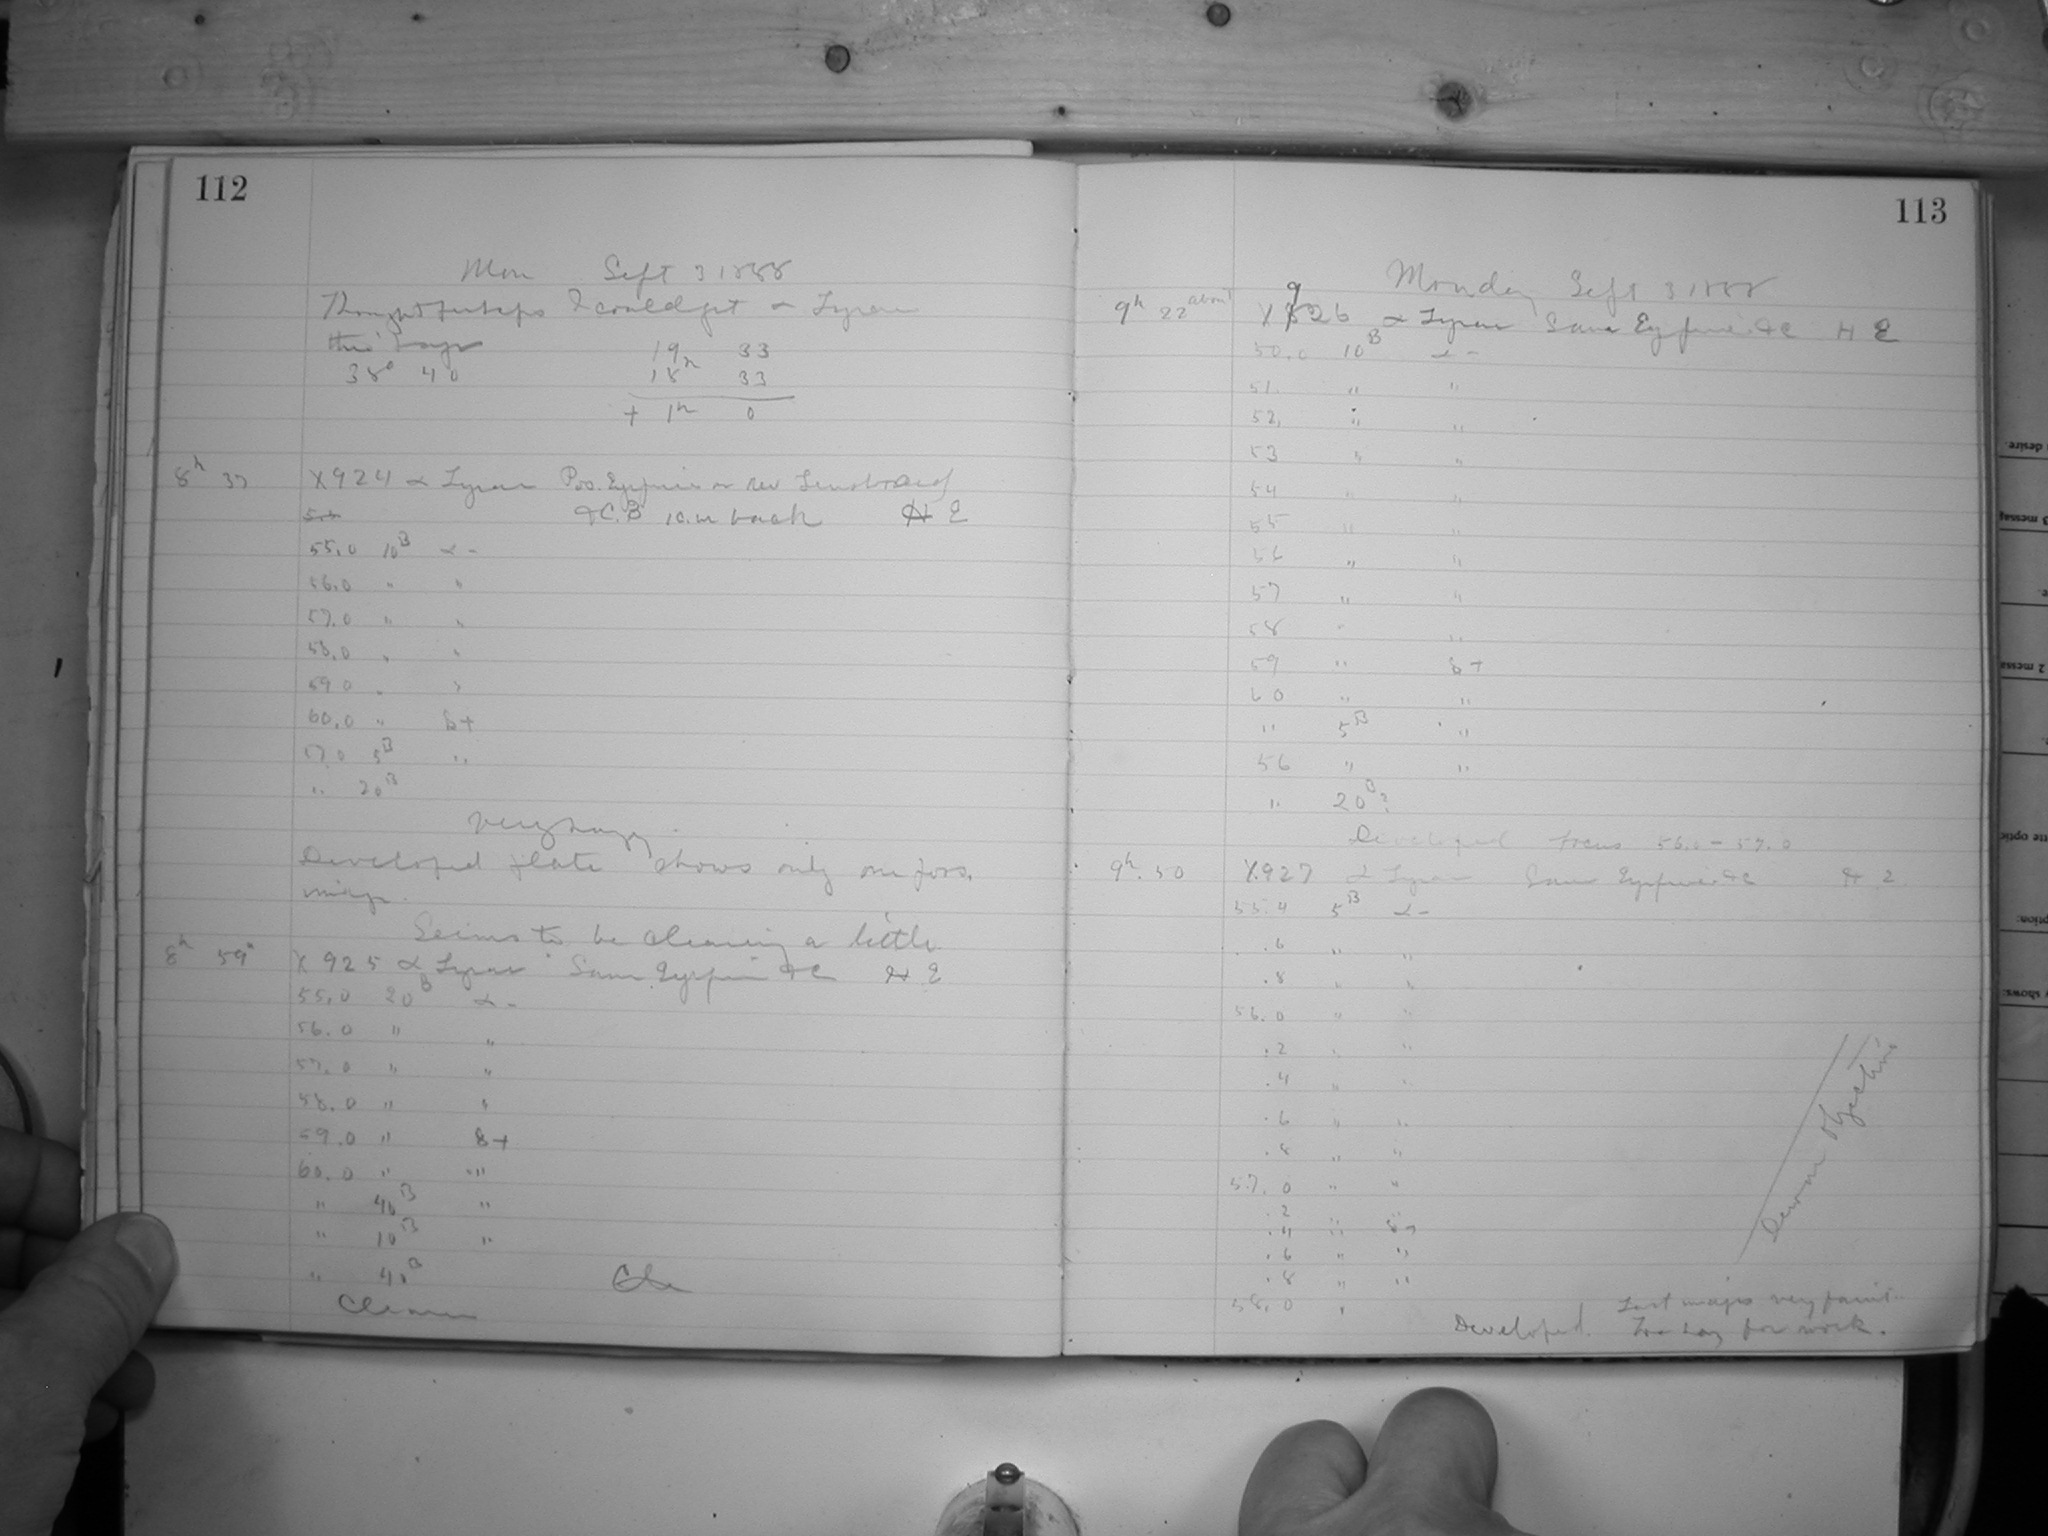 112
Mon Sept 3 1888
Thought perhaps I could get α Lyrae
thro' haze 19 33
38° 40 18h 33
+ 1h 0
8h 37 X924 α Lyrae Pos. Eyepiece on rev
& C.B. on back H E
55.0 10B α -
56.0 " "
57.0 " "
58.0 " "
59.0 " "
60.0 " δ+
57.0 5B "
" 20B
very hazy.
Developed plate shows only one pos.
image.
Seems to be clearing a little
8h 59 X 925 α Lyrae Same Eyepiece &c H E
55.0 20B α -
56.0 " "
57.0 " "
58.0 " "
59.0 " δ+
60.0 " "
" 40B "
" 10B "
" 40B
113
Monday Sept 3 1888
9h 22 about X926 α Lyrae Same Eyepiece &c H E
50.0 10B α -
51. " "
52. " "
53 " "
54 " "
55 " "
56 " "
57 " "
58 " "
59 " δ+
60 " "
" 5B "
56 " "
" 20B?
Developed focus 56.0 - 57.0
9h. 50 X927 α Lyrae Same Eyepiece &c H E
55.4 5B α -
.6 " "
.8 " "
56.0 " "
.2 " "
.4 " "
.6 " "
.8 " "
57.0 " "
.2
.4 " δ+
.6 " "
.8 " "
58.0 "
Last images very faint
Developed. Too hazy for work.
objective